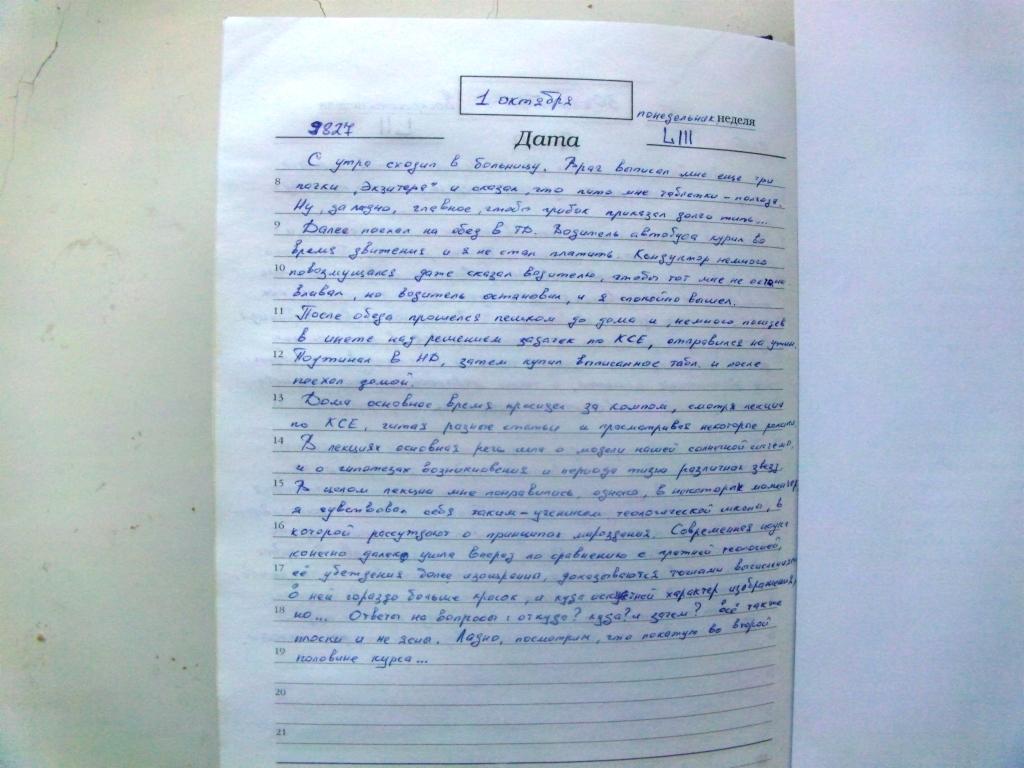 1 октября
понедельник неделя
9827 Дата LIII
С утра сходил в больницу. Врач выписал мне еще три
8 пачки „Экзитера“ и сказал, что пить мне таблетки – полгода.
Ну, да ладно, главное, чтобы грибок приказал долго жить...
9 Далее поехал на обед в ТД. Водитель автобуса курил во
время движения и я не стал платить. Кондуктор немного
10 повозмущался даже сказал водителю, чтобы тот мне не остана
вливал, но водитель остановил, и я спокойно вышел.
11 После обеда прошелся пешком до дома и, немного посидев
в инете над решением задачек по КСЕ, отправился на ужин.
12 Поужинал в НД, затем купил выписанное табл. и после
поехал домой.
13 Дома основное время просидел за компом, смотря лекции
по КСЕ, читая разные статьи и просматривая некоторые
14 В лекциях основная речь шла о модели нашей солнечной системы,
и о гипотезах возникновения и периода жизни различных звезд.
15 В целом лекции мне понравились, однако, в некоторые моменты
я чувствовал себя таким-учеником теологической школы, в
16 которой рассуждают о принципах мироздания. Современная наука
конечно далеко ушла вперед по сравнению с древней теологией,
17 её убеждения более изощренны, доказываются тоннами вычислений,
в ней гораздо больше красок, и куда искусней характер изображения,
18 но... Ответы на вопросы: откуда? куда? и зачем? всё также
плоски и не ясны. Ладно, посмотрим, что покажут во второй
19 половине курса...
20
21